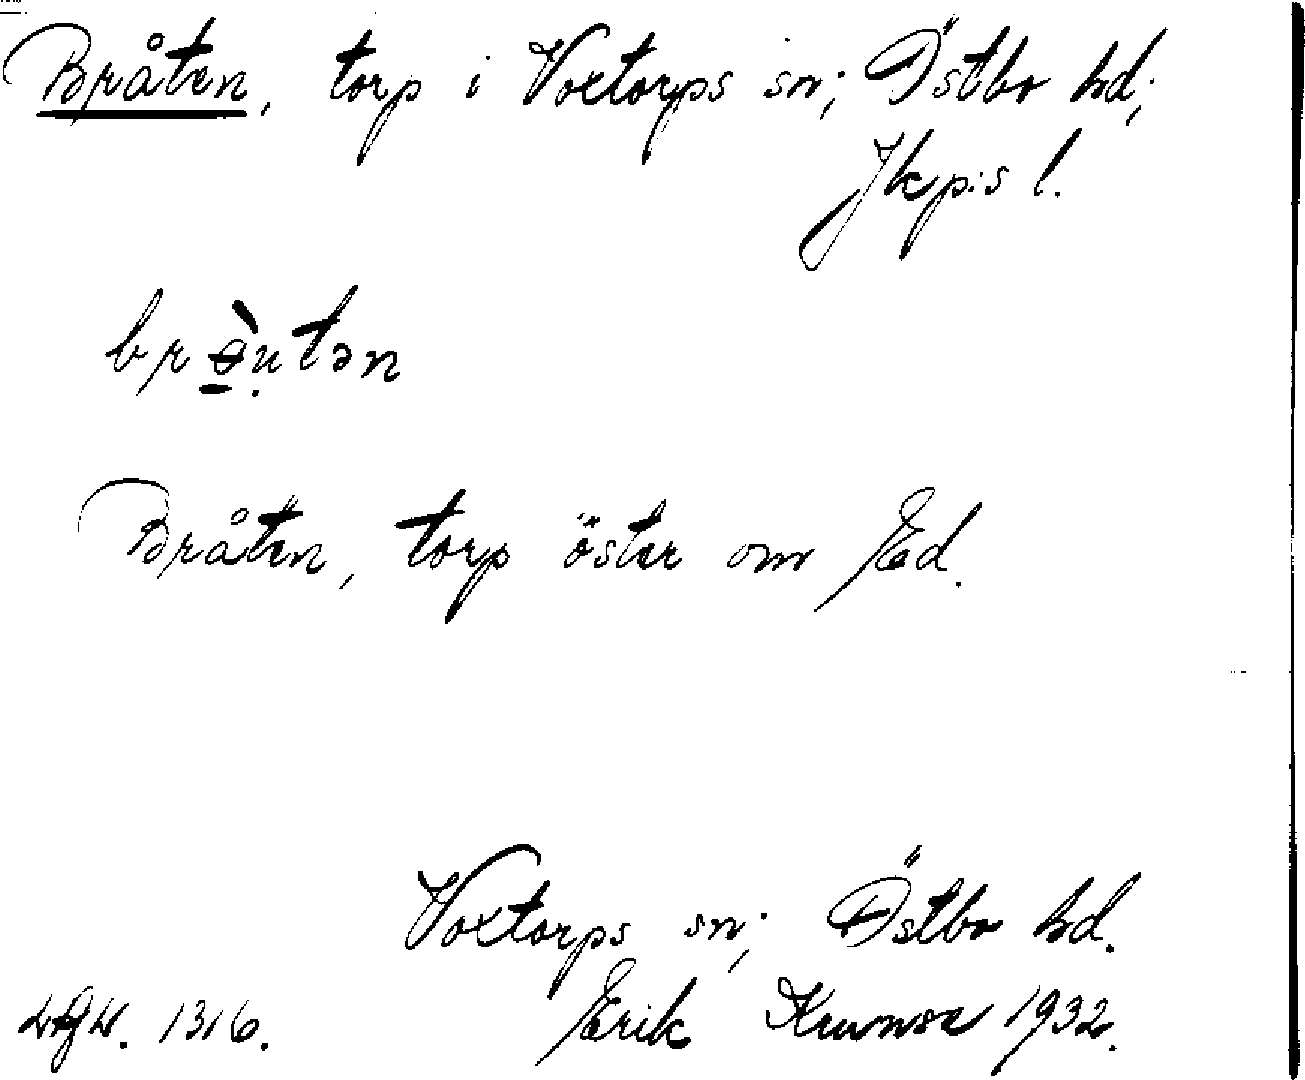 Bråten, torp i Voxtorps sn; Östbo hd;
Jkp:s l.
brɵ̀u̇tən
Bråten, torp öster om Ed.
Voxtorps sn; Östbo hd.
1316. Erik 1932.